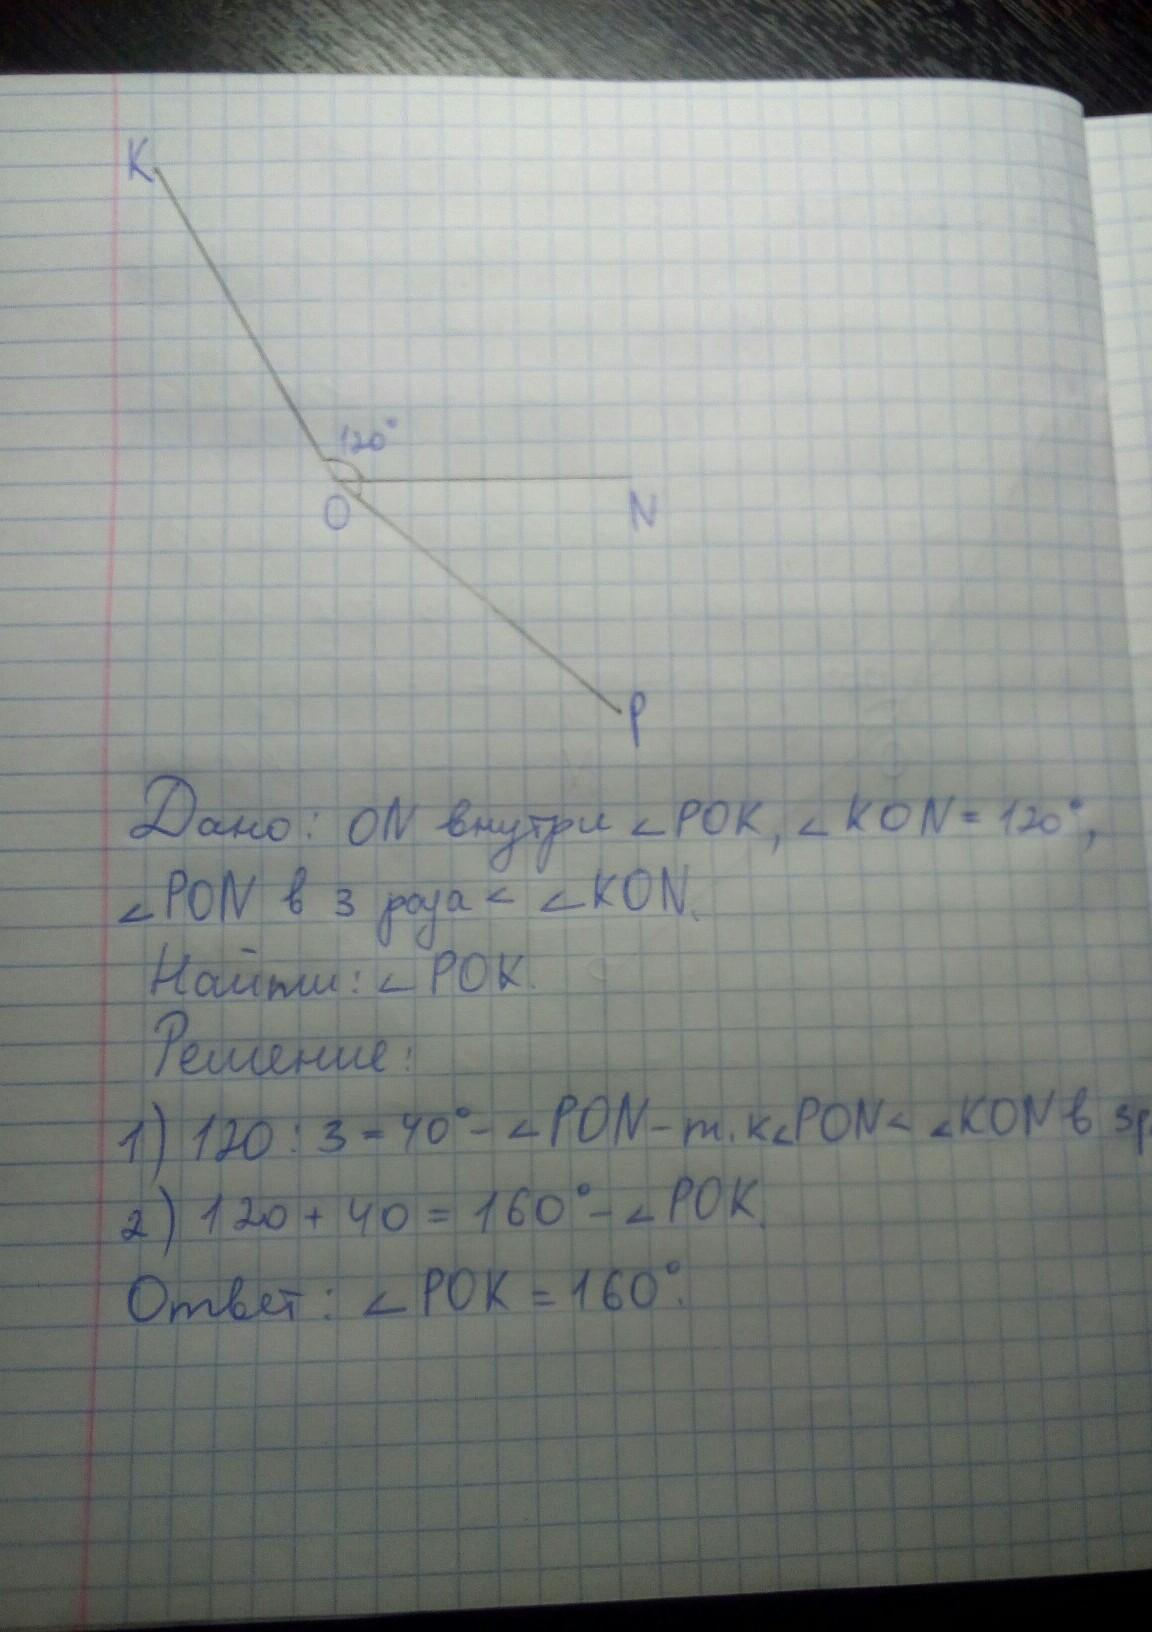 K
120°
O
N
P
Дано: ON внутри ∠POK, ∠KON = 120°,
∠PON в 3 раза < ∠KON.
Найти: ∠POK.
Решение:
1) 120 : 3 = 40° - ∠PON - т.к ∠PON < ∠KON в 3 р
2) 120 + 40 = 160° - ∠POK.
Ответ: ∠POK = 160°.